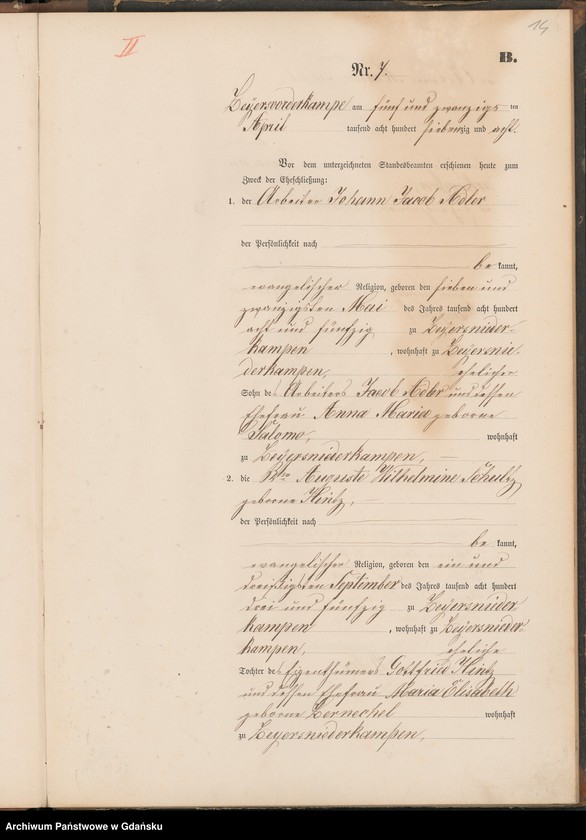 14
II
B.
Nr. 7.
Zeyersvorderkampe am fünf und zwanzigs ten
April tausend acht hundert siebenzig und acht.
Vor dem unterzeichneten Standesbeamten erschienen heute zum
Zweck der Eheschließung:
1. der Arbeiter Johann Jacob Adler
der Persönlichkeit nach
be kannt,
evangelischer Religion, geboren den sieben und
zwanzigsten Mai des Jahres tausend acht hundert
acht und fünfzig zu Zeyersnieder-
kampen, wohnhaft zu Zeyersnie-
derkampen, ehelicher
Sohn des Arbeiters Jacob Adler und dessen
Ehefrau Anna Maria geborne
Salomo, wohnhaft
zu Zeyersniederkampen,
2. die Wwe Auguste Wilhelmine Schultz
geborne Hintz,
der Persönlichkeit nach
be kannt,
evangelischer Religion, geboren den ein und
dreißigsten September des Jahres tausend acht hundert
drei und fünfzig zu Zeyersnieder
kampen, wohnhaft zu Zeyersnieder-
kampen, eheliche
Tochter des Eigenthümers Gottfried Hintz
und dessen Ehefrau Maria Elisabeth
geborne wohnhaft
zu Zeyersniederkampen,
Archiwum Państwowe w Gdańsku